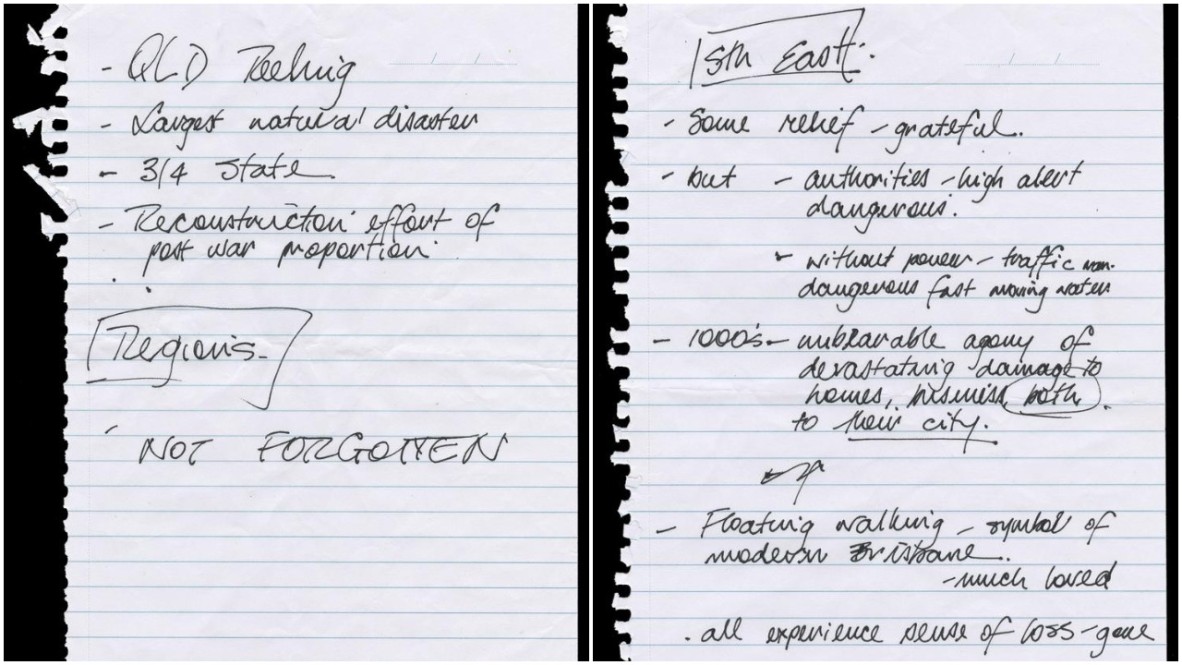 - QLD Reeling
- Largest natural disaster
- 3/4 State
- Reconstruction effort of
post war proportion.
Regions-
NOT FORGOTTEN
Sth East:
- Some relief - grateful.
- but - authorities - high alert
dangerous.
- without power - traffic
dangerous fast moving water
- 1000's - unbearable agony of
devastating damage to
homes, business, both
to their city.
- Floating walking - symbol of
modern Brisbane.
- much loved
. all experience sense of loss - gone